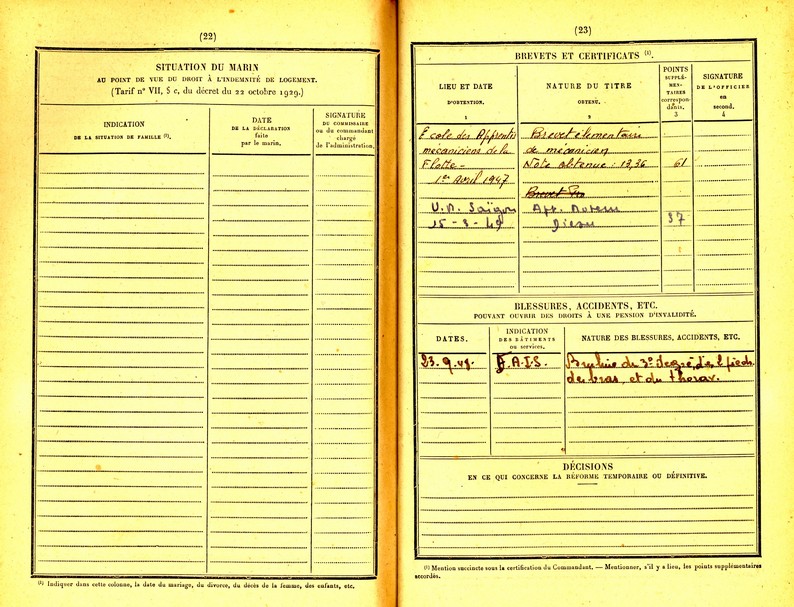 (22)
SITUATION DU MARIN
AU POINT DE VUE DU DROIT À L'INDEMNITÉ DE LOGEMENT.
(Tarif n° VII, § c, du décret du 22 octobre 1929.)
INDICATION
DE LA SITUATION DE FAMILLE (1).
DATE
DE LA DÉCLARATION
faite
par le marin.
SIGNATURE
DU COMMISSAIRE
ou du commandant
chargé
de l'administration.
(1) Indiquer dans cette colonne, la date du mariage, du divorce, du décès de la femme, des enfants, etc.
(23)
BREVETS ET CERTIFICATS (1).
LIEU ET DATE
D'OBTENTION.
1
NATURE DU TITRE
OBTENU.
2
POINTS
SUPPLÉ-
MEN-
TAIRES
correspon-
dants.
3
SIGNATURE
DE L'OFFICIER
en
second.
4
École des Apprentis
mécaniciens de la
Flotte -
1er Avril 1947
Brevet élémentaire
de mécanicien
Note obtenue : 13,36
61
Brevet
U.A. Saïgon
15-3-49
App. Moteur
Diesel
37
BLESSURES, ACCIDENTS, ETC.
POUVANT OUVRIR DES DROITS À UNE PENSION D'INVALIDITÉ.
DATES.
INDICATION
DES BÂTIMENTS
ou services.
NATURE DES BLESSURES, ACCIDENTS, ETC.
23.9.48.
F.A.I.S.
Brulure du 3° degré des 2 pieds
des bras, et du thorax.
DÉCISIONS
EN CE QUI CONCERNE LA RÉFORME TEMPORAIRE OU DÉFINITIVE.
(1) Mention succincte sous la certification du Commandant. — Mentionner, s'il y a lieu, les points supplémentaires
accordés.